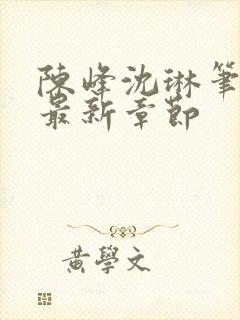 陳峰沈琳筆
最新章節
黃學文